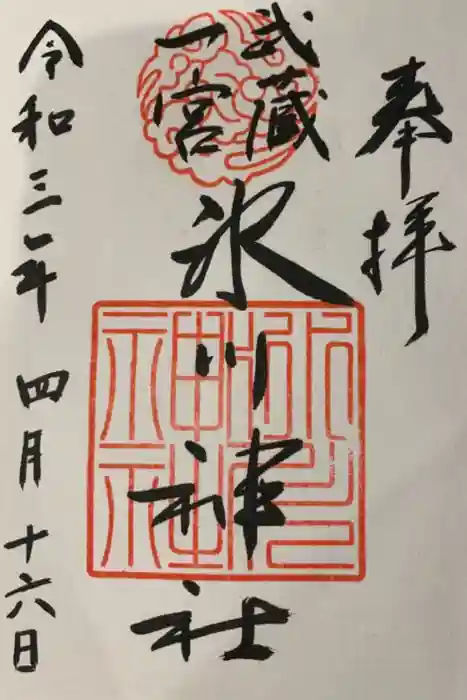 奉拝
武蔵
一宮
氷川神社
令和三年四月十六日
氷川
神社